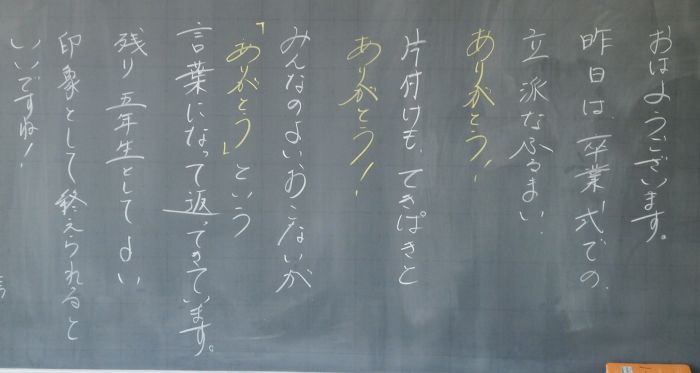 おはようございます。
昨日は、卒業式での、
立派なふるまい、
ありがとう！
片付けも、てきぱきと
ありがとう！
みんなのよいおこないが
「ありがとう」という
言葉になって返ってきています。
残り五年生としてよい
印象として終えられると
いいですね！